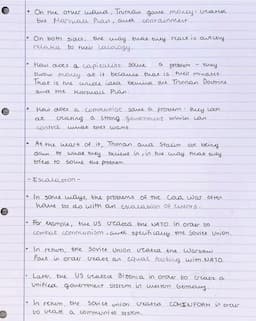 • On the other hand, Truman gave money, created
the Marshall Plan, and containment.
• On both sides, the way that they react is entirely
related to their ideology.
• How does a capitalist solve a problem - they
throw money at it because that is their mindset.
That is the whole idea behind the Truman Doctrine
and the Marshall Plan.
• How does a communist solve a problem: they look
at creating a strong government which can
control what they want.
• At the heart of it, Truman and Stalin are being
down to what they believe in, in the way that they
tried to solve the problem.
- Escalation -
• In some ways, the problems of the Cold War often
have to do with an escalation of events.
• For example, the US created the NATO in order to
combat communism, and specifically the Soviet Union.
• In return, the Soviet Union created the Warsaw
Pact in order create an equal footing with NATO.
• Later, the US created Bizonia in order to create a
unified government system in western Germany.
• In return, the Soviet Union creates COMINFORM in order
to create a communist system.